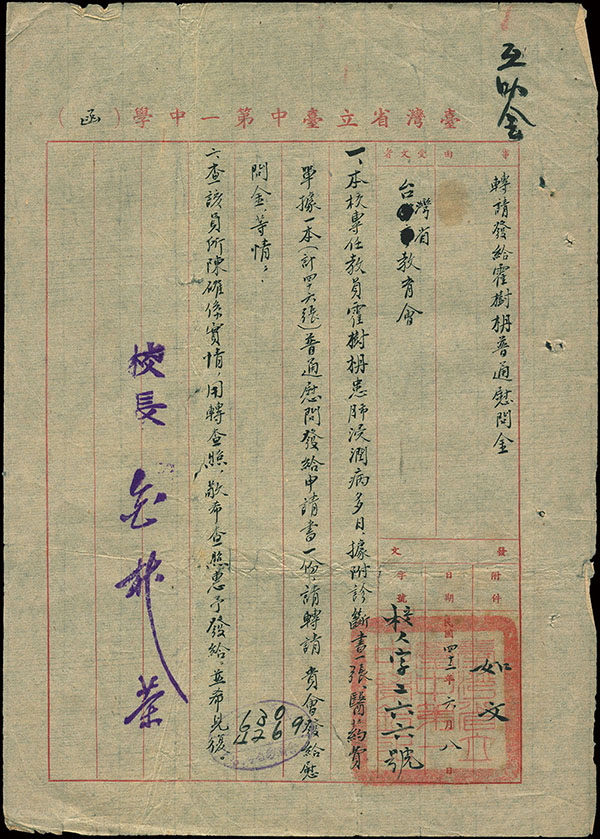 互助金
臺灣省立臺中第一中學（函）
事由
轉請發給霍樹枬普通慰問金
受文者
台灣省教育會
發文
附件
如文
日期
民國四十二年六月八日
字號
校人字二六六號
一、本校專任教員霍樹枬患肺浸潤病多日，據附診斷書一張、醫葯費
單據一本（計四十六張）普通慰問發給申請書一份，請轉請 貴會發給慰
問金等情。
二、查該員所陳確係實情，用轉查照，敬希查照惠予發給，並希見復。
校長 金樹榮
650
42269